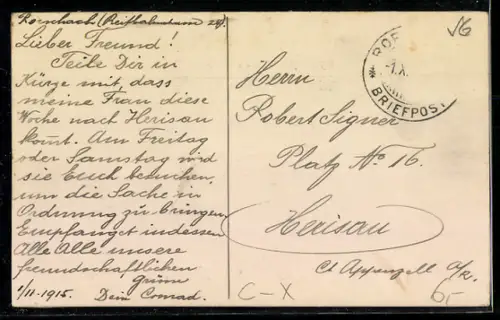 Rorschach
Lieber Freund!
Teile Dir in
Kürze mit, dass
meine Frau diese
Woche nach Herisau
kom̄t. Am Freitag
oder Samstag wird
sie Euch besuchen,
um die Sache in
Ordnung zu bringen
Empfanget indessen
Alle Alle unsere
freundschaftlichen
Grüsse
1/11. 1915. Dein Conrad.
56
ROR
BRIEFPOST
Herrn
Robert Signer
Platz No 16.
Herisau
Ct Appenzell A/R.
C-X